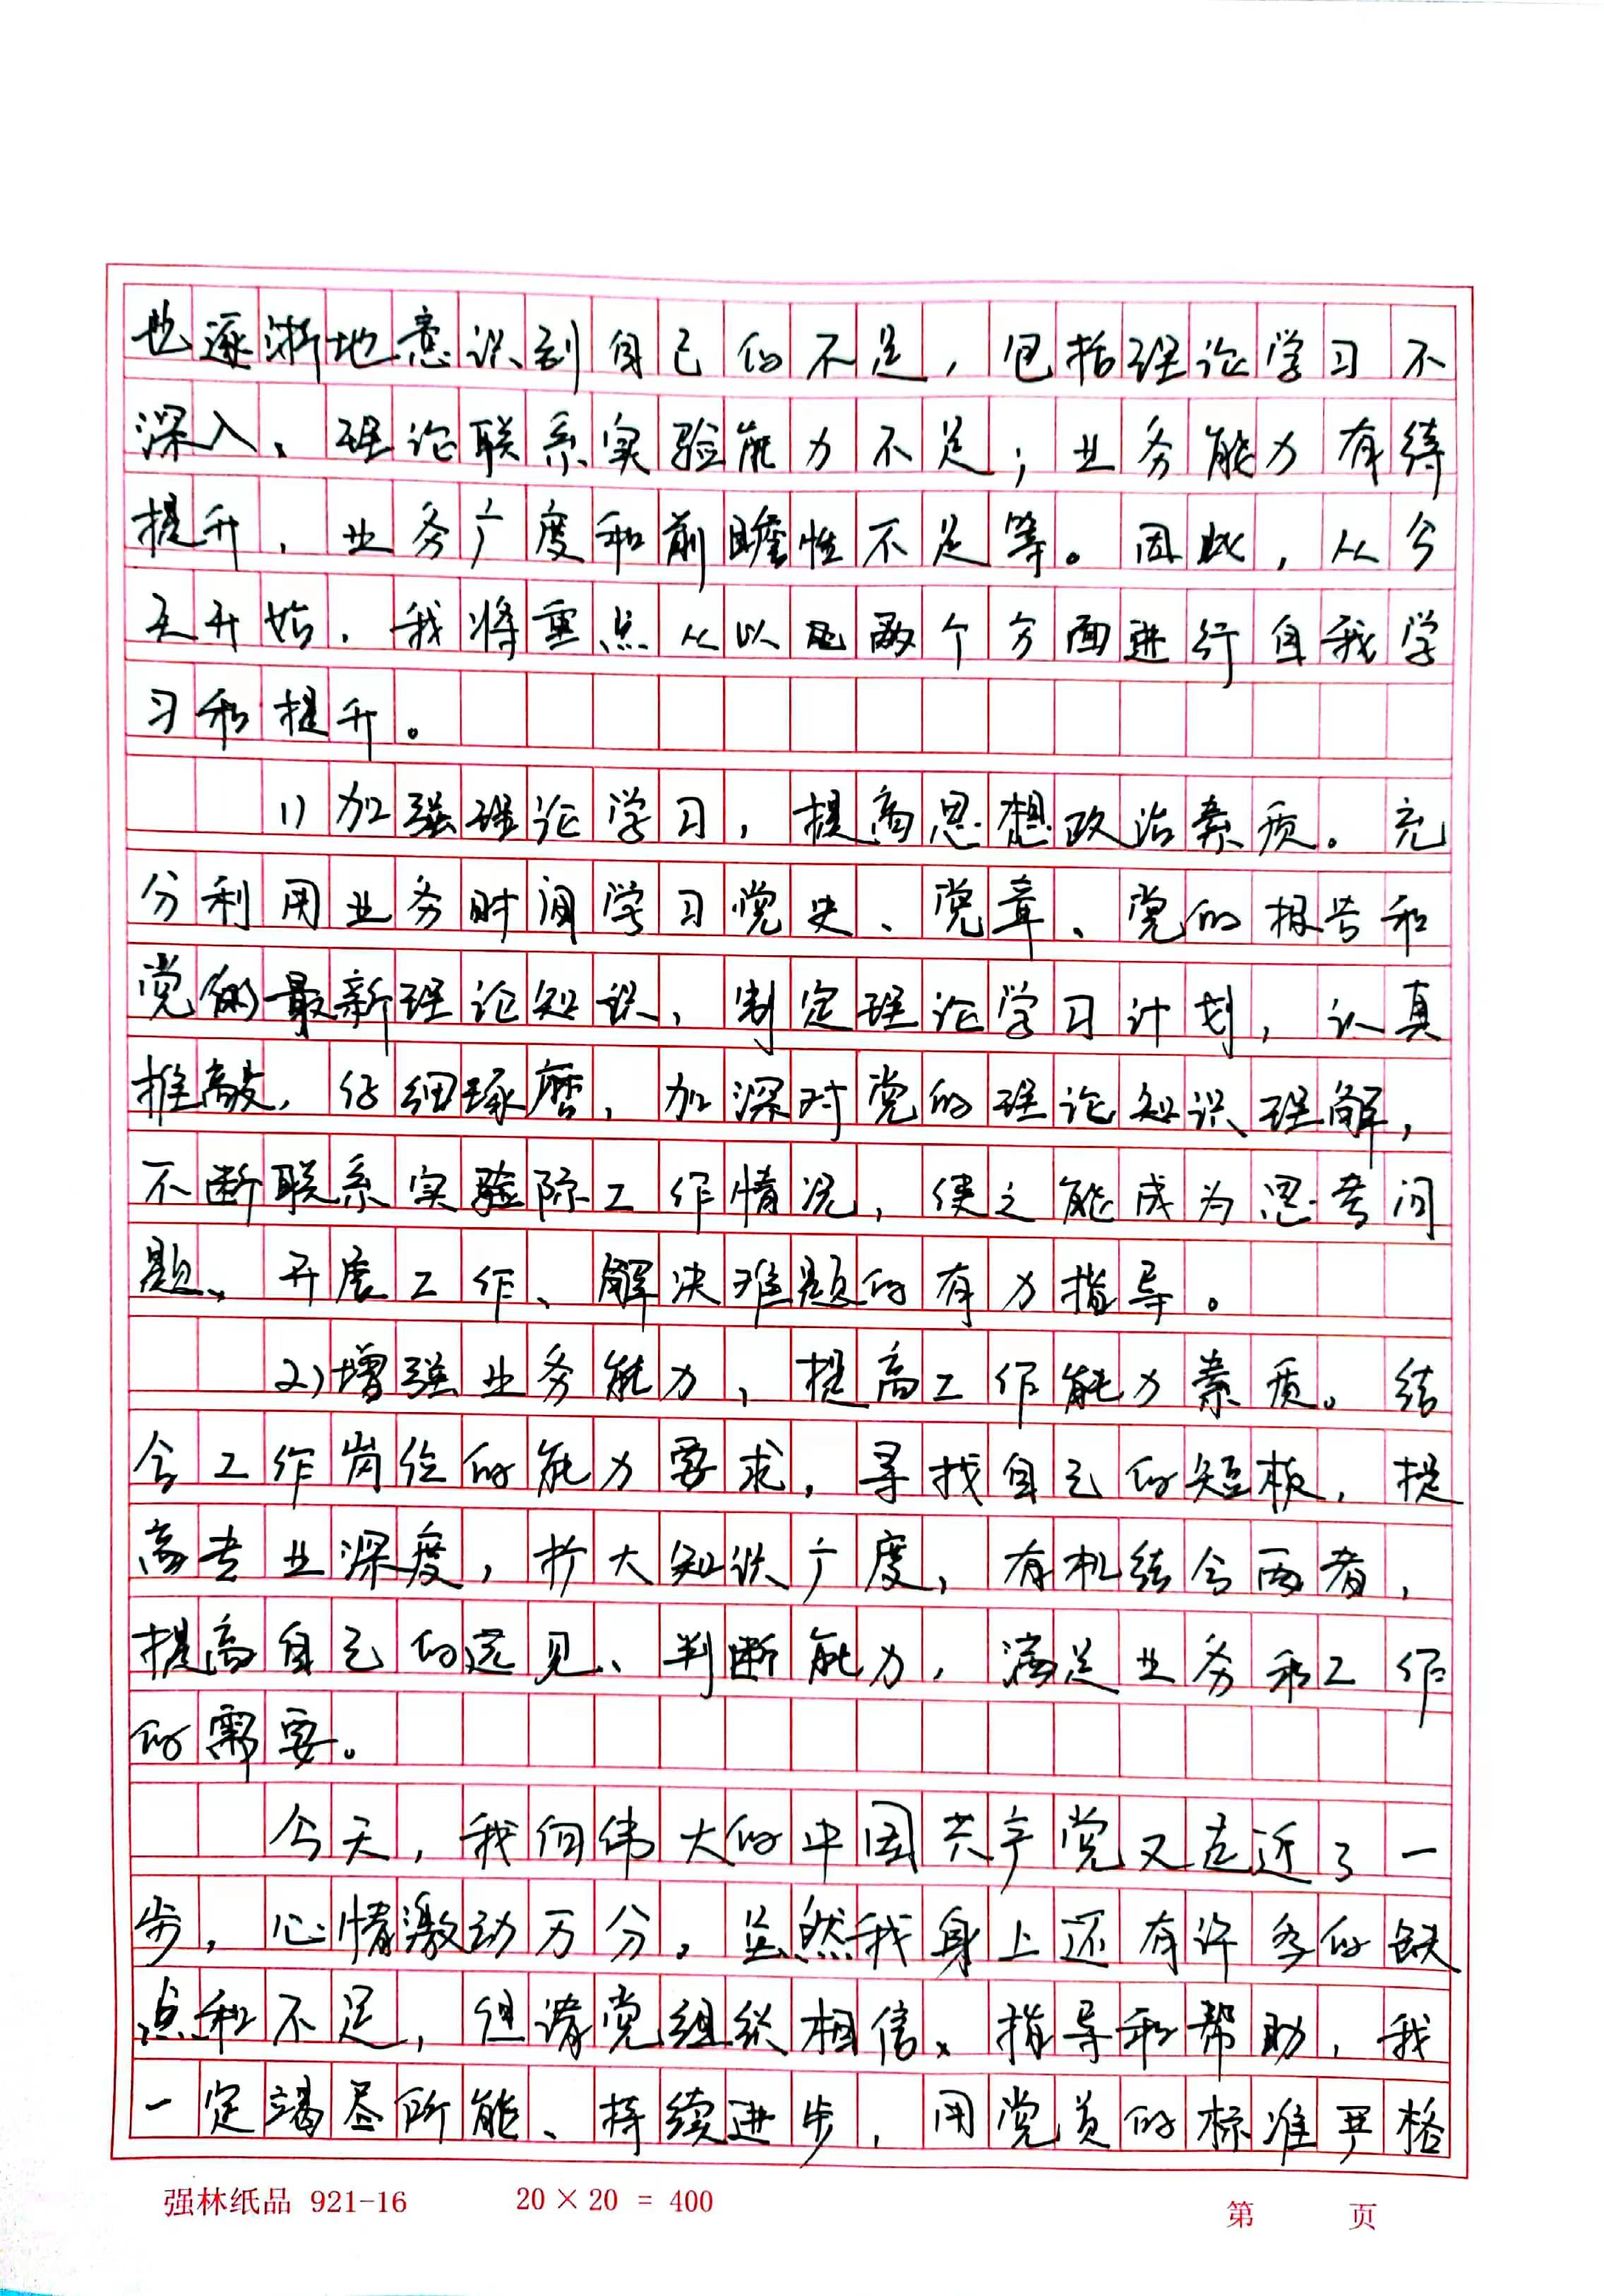 也逐渐地意识到自己的不足，包括理论学习不
深入、理论联系实验能力不足；业务能力有待
提升，业务广度和前瞻性不足等。因此，从今
天开始，我将重点从以下两个方面进行自我学
习和提升。
1)加强理论学习，提高思想政治素质。充
分利用业务时间学习党史、党章、党的报告和
党的最新理论知识，制定理论学习计划，认真
推敲，仔细琢磨，加深对党的理论知识理解，
不断联系实际工作情况，使之能成为思考问
题、开展工作、解决难题的有力指导。
2)增强业务能力，提高工作能力素质。结
合工作岗位的能力要求，寻找自己的短板，提
高专业深度，扩大知识广度，有机结合两者，
提高自己的远见、判断能力，满足业务和工作
的需要。
今天，我向伟大的中国共产党又走近了一
步，心情激动万分。虽然我身上还有许多的缺
点和不足，但请党组织相信、指导和帮助，我
一定竭尽所能、持续进步，用党员的标准严格
强林纸品 921-16 20×20=400 第 页